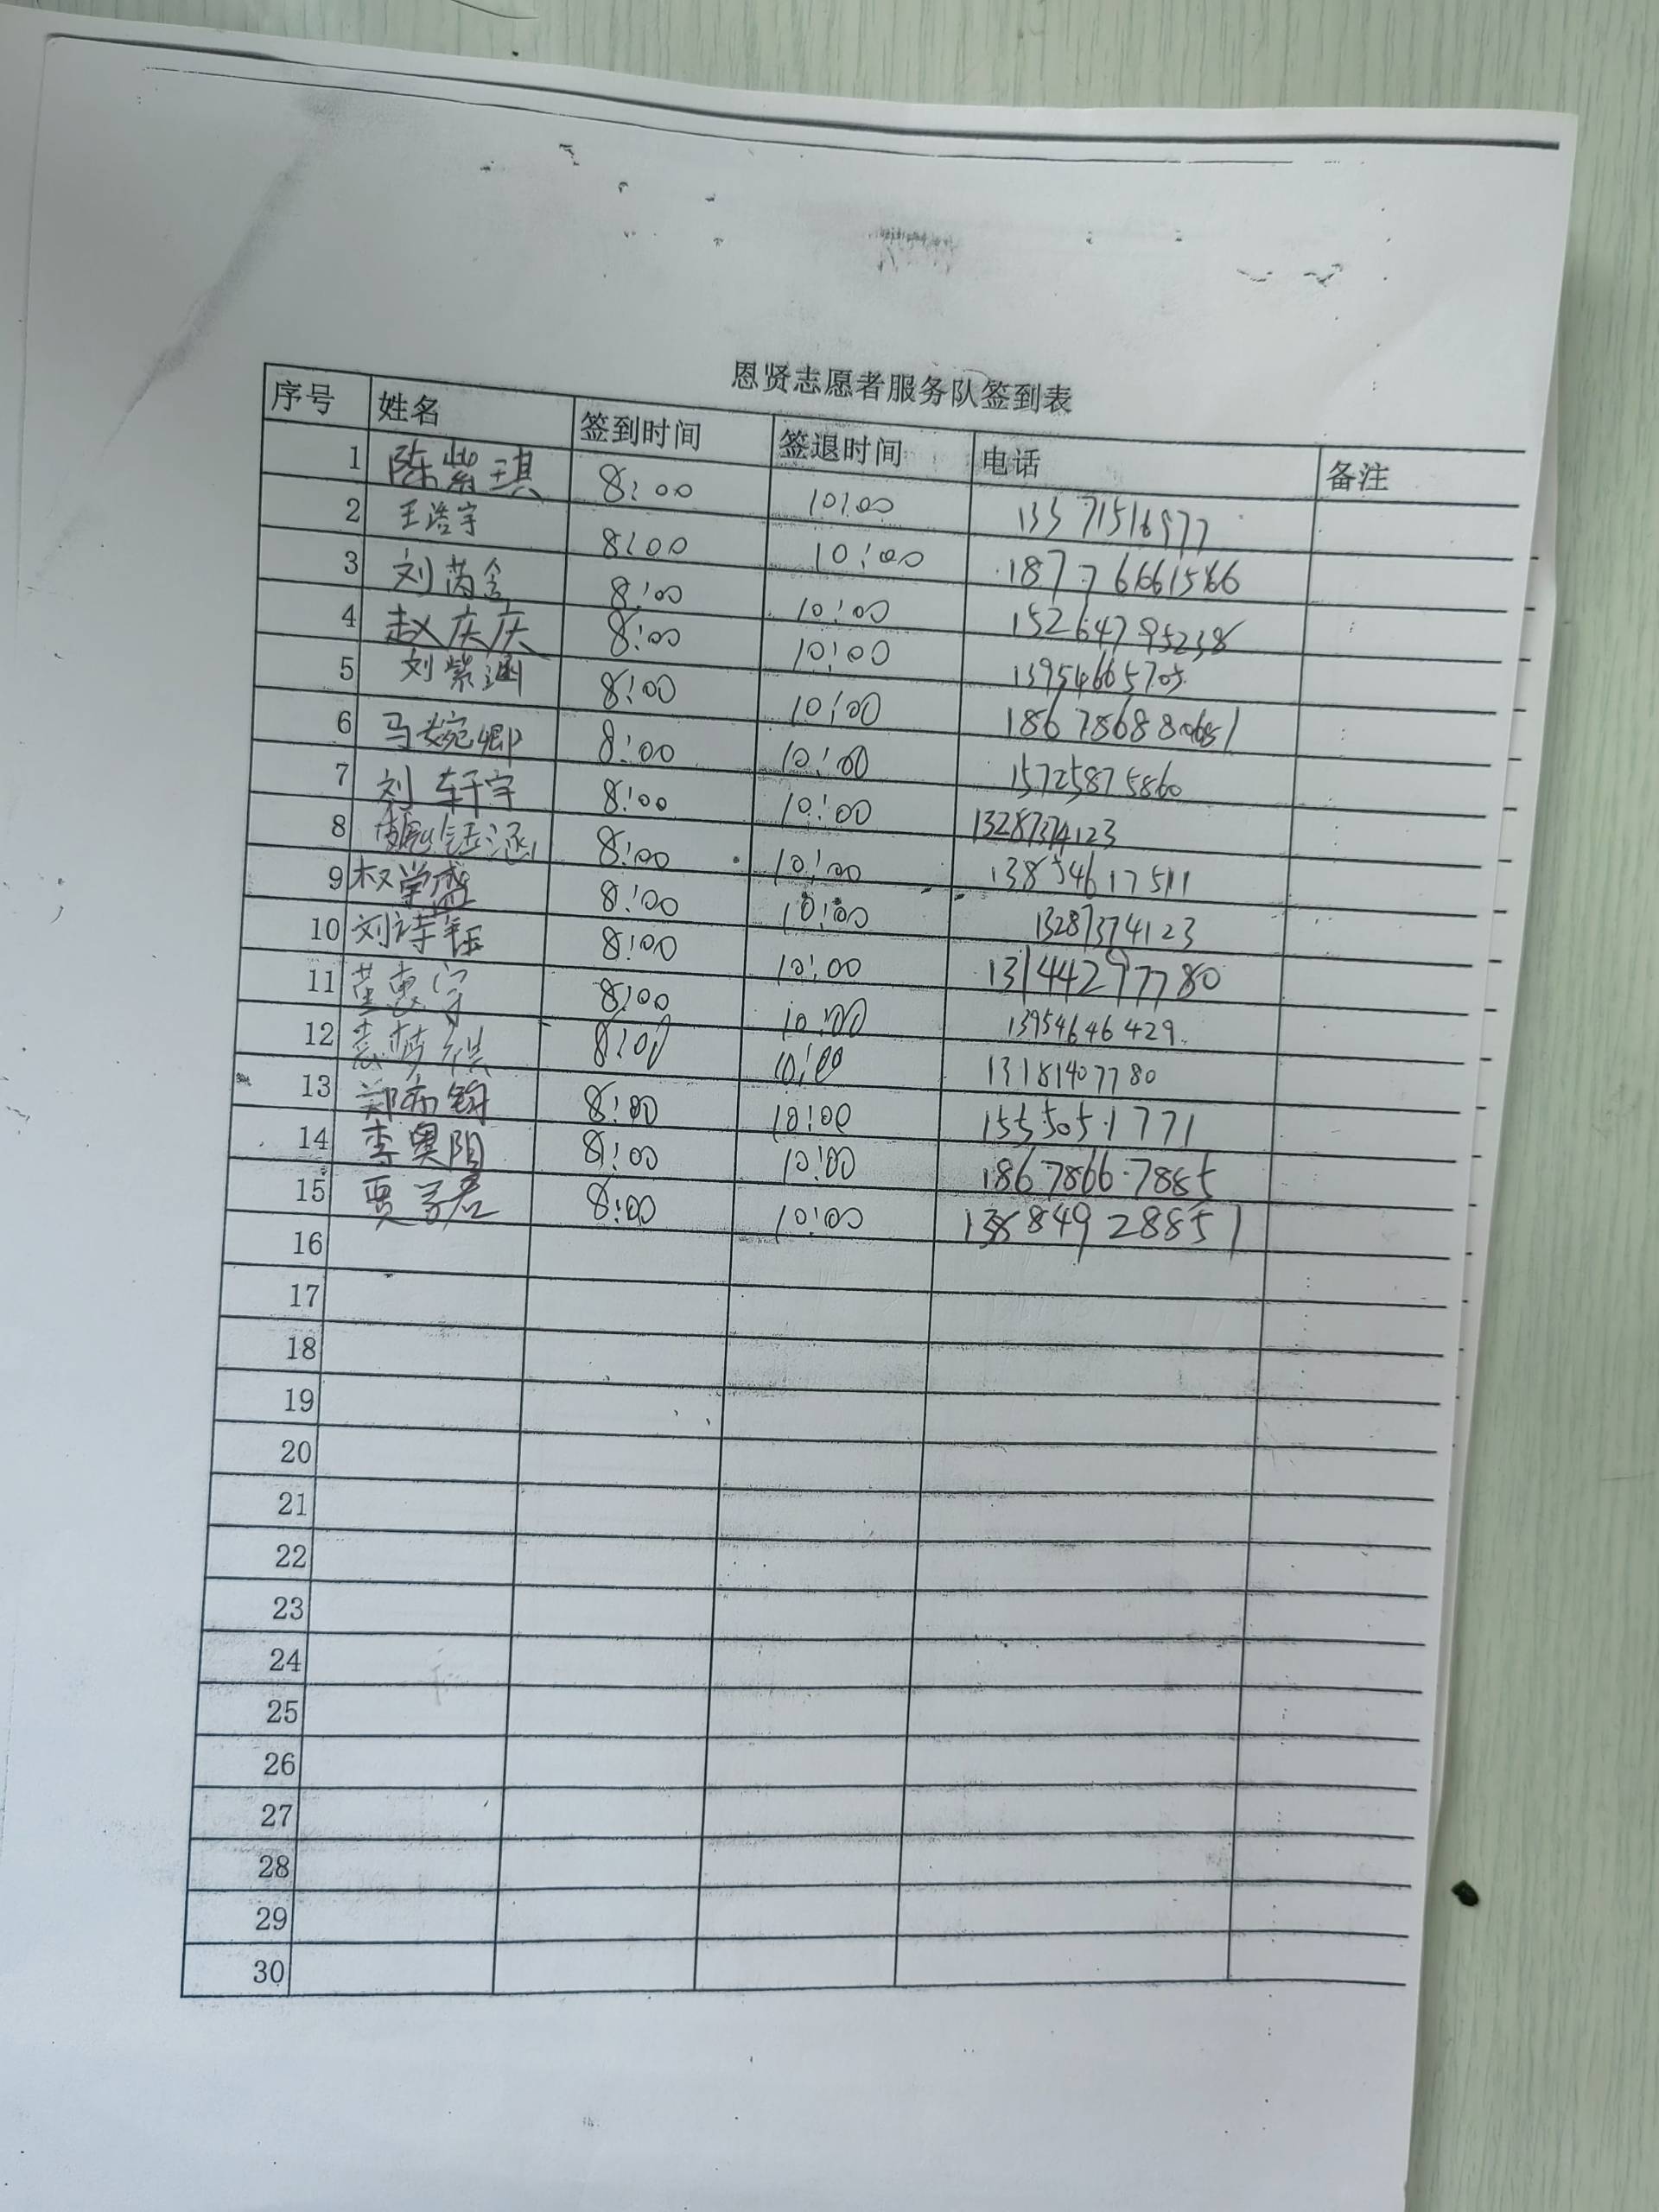 恩贤志愿者服务队签到表
序号 姓名 签到时间 签退时间 电话 备注
1 陈紫琪 8:00 10:00 13371516977
2 王浩宇 8:00 10:00 18776661566
3 刘芮含 8:00 10:00 15264795238
4 赵庆庆 8:00 10:00 13954665705
5 刘紫涵 8:00 10:00
6 马婉卿 8:00 10:00 15725875860
7 刘轩宇 8:00 10:00 13287374123
8 8:00 10:00 13854617511
9 权学盛 8:00 10:00 13287374123
10 刘诗钰 8:00 10:00 13144297780
11 董惠宇 8:00 10:00 13954646429
12 袁梦祺 8:00 10:00 13181407780
13 8:00 10:00 15550551771
14 李奥阳 8:00 10:00 18678667885
15 贾子君 8:00 10:00
16
17
18
19
20
21
22
23
24
25
26
27
28
29
30